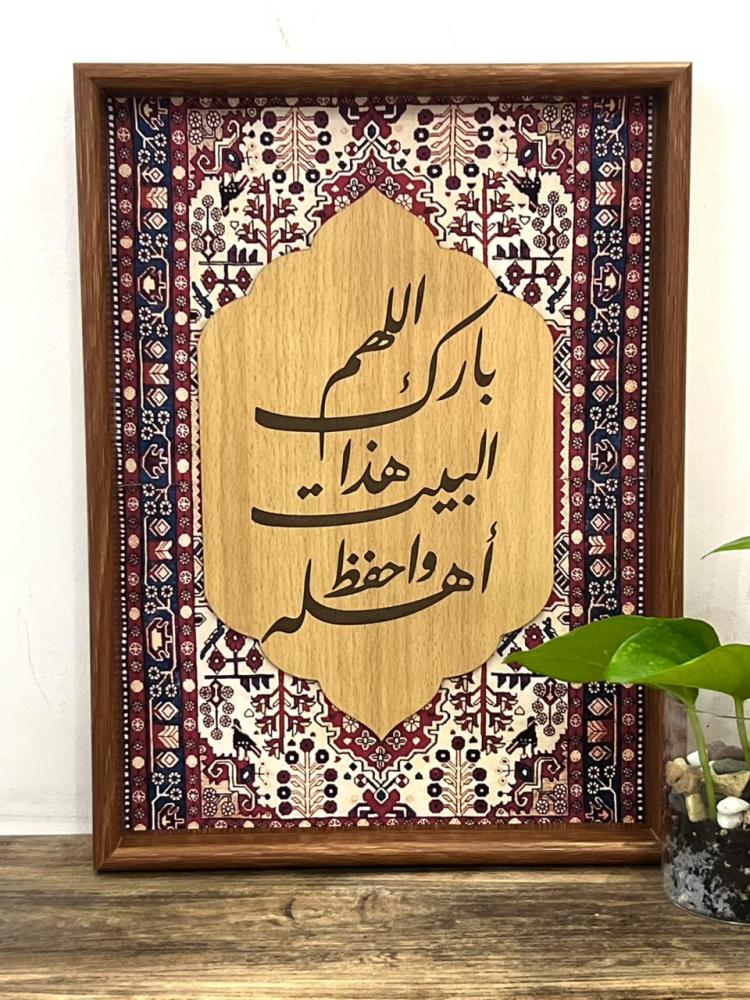 اللهم بارك
هذا البيت
واحفظ أهله